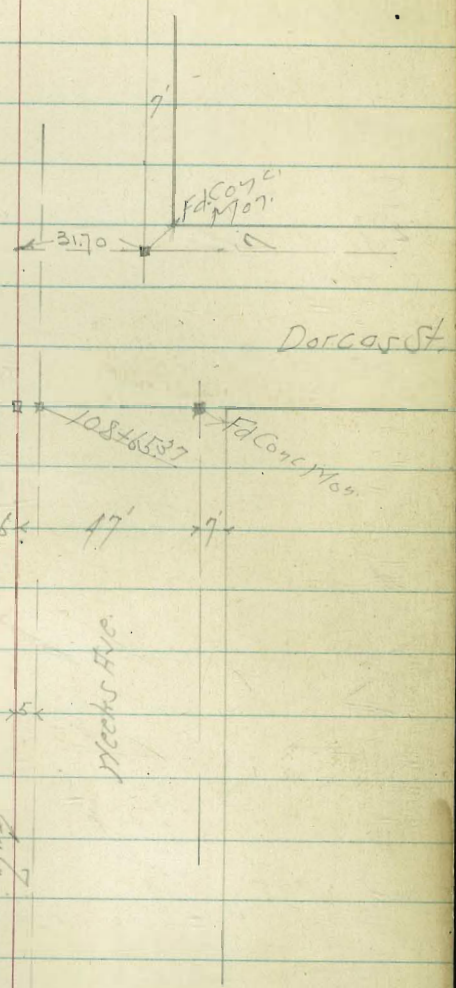 7'
Fd. Conc.
Mon.
31.70
7
Dorcas St.
108+65.37
Fd Conc Mon.
6
47'
7'
Weeks Ave.
5